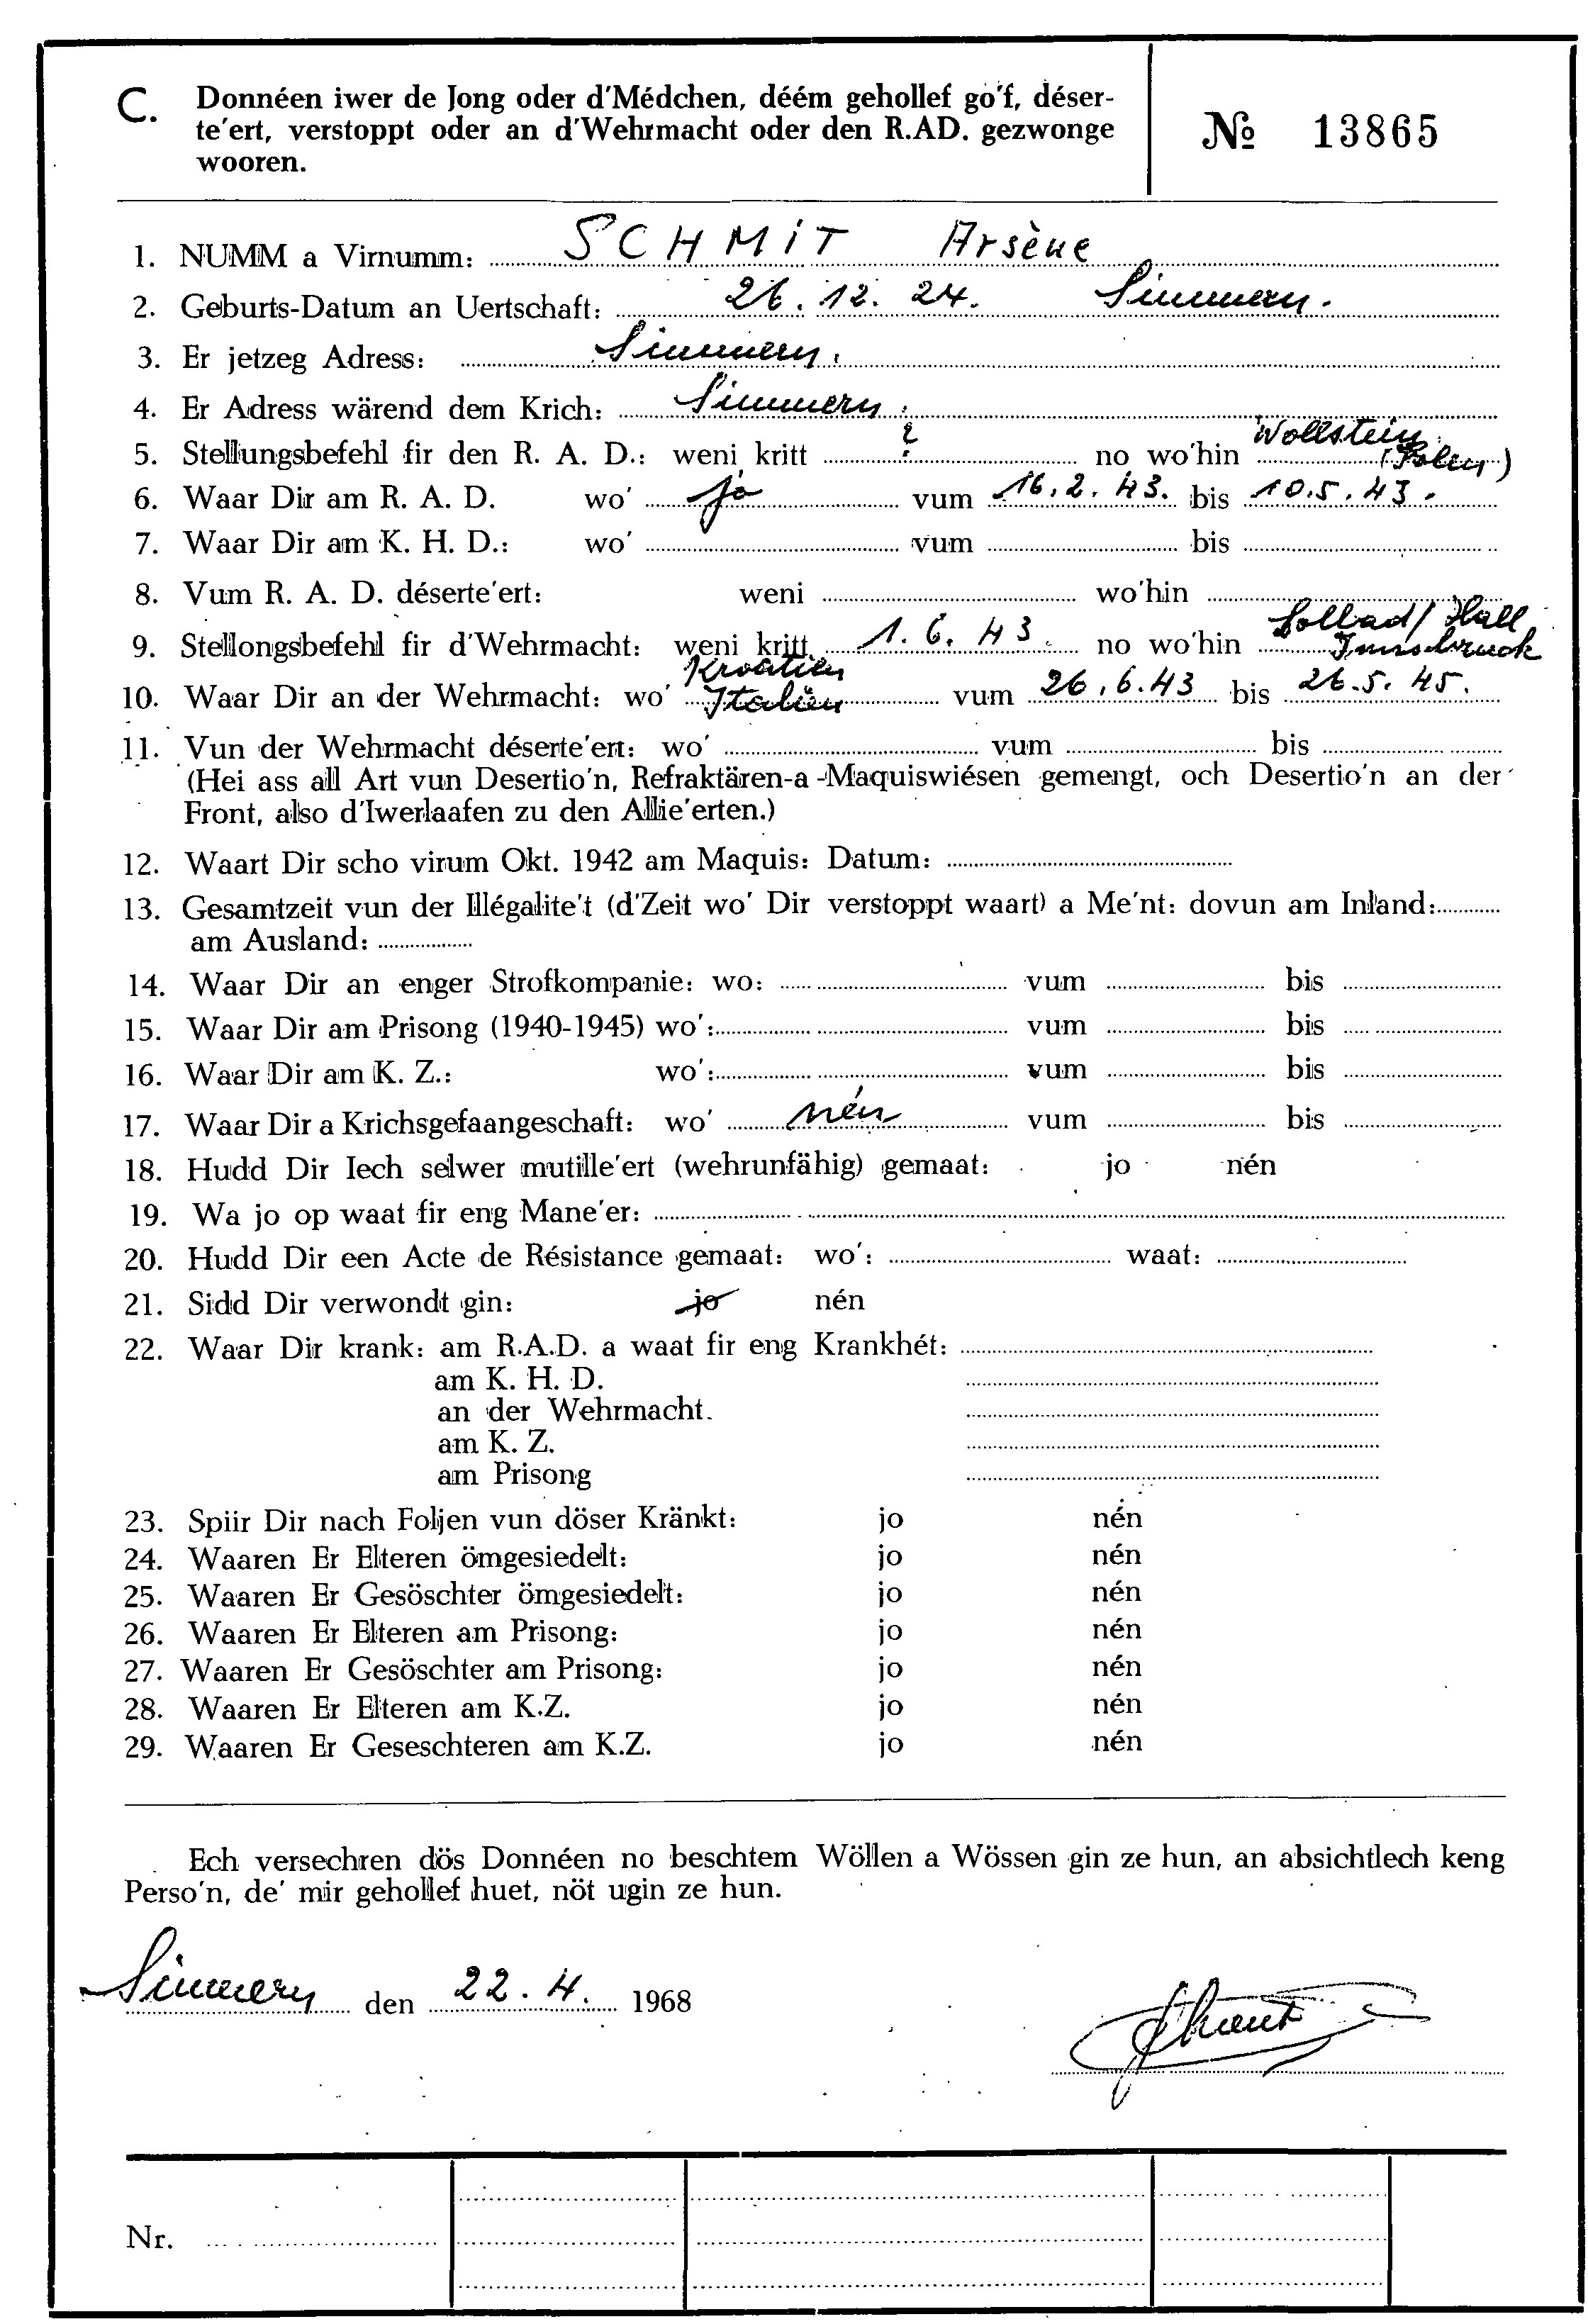 C. Donnéen iwer de Jong oder d'Médchen, déém gehollef go'f, déser-
te'ert, verstoppt oder an d'Wehrmacht oder den R.AD. gezwonge
wooren.
№ 13865
1. NUMM a Virnumm: SCHMiT Arsène
2. Geburts-Datum an Uertschaft: 26.12.24. Simmern.
3. Er jetzeg Adress: Simmern.
4. Er Adress wärend dem Krich: Simmern.
5. Stellungsbefehl fir den R. A. D.: weni kritt ? no wo'hin Wollstein (Polen)
6. Waar Dir am R. A. D. wo' jo vum 16.2.43. bis 10.5.43.
7. Waar Dir am K. H. D.: wo' vum bis
8. Vum R. A. D. déserte'ert: weni wo'hin
9. Stellongsbefehl fir d'Wehrmacht: weni kritt 1.6.43. no wo'hin Solbad/Hall Innsbruck
10. Waar Dir an der Wehrmacht: wo' Kroatien Italien vum 26.6.43 bis 26.5.45.
11. Vun der Wehrmacht déserte'ert: wo' vum bis
(Hei ass all Art vun Desertio'n, Refraktären-a-Maquiswiésen gemengt, och Desertio'n an der
Front, also d'Iwerlaafen zu den Allie'erten.)
12. Waart Dir scho virum Okt. 1942 am Maquis: Datum:
13. Gesamtzeit vun der Illégalite't (d'Zeit wo' Dir verstoppt waart) a Me'nt: dovun am Inland:
am Ausland:
14. Waar Dir an enger Strofkompanie: wo: vum bis
15. Waar Dir am Prisong (1940-1945) wo': vum bis
16. Waar Dir am K. Z.: wo': vum bis
17. Waar Dir a Krichsgefaangeschaft: wo' nén vum bis
18. Hudd Dir Iech selwer mutille'ert (wehrunfähig) gemaat: jo nén
19. Wa jo op waat fir eng Mane'er:
20. Hudd Dir een Acte de Résistance gemaat: wo': waat:
21. Sidd Dir verwondt gin: jo nén
22. Waar Dir krank: am R.A.D. a waat fir eng Krankhét:
am K. H. D.
an der Wehrmacht.
am K. Z.
am Prisong
23. Spiir Dir nach Foljen vun döser Kränkt: jo nén
24. Waaren Er Elteren ömgesiedelt: jo nén
25. Waaren Er Gesöschter ömgesiedelt: jo nén
26. Waaren Er Elteren am Prisong: jo nén
27. Waaren Er Gesöschter am Prisong: jo nén
28. Waaren Er Elteren am K.Z. jo nén
29. Waaren Er Geseschteren am K.Z. jo nén
Ech versechren dös Donnéen no beschtem Wöllen a Wössen gin ze hun, an absichtlech keng
Perso'n, de' mir gehollef huet, nöt ugin ze hun.
Simmern den 22.4. 1968
Nr.